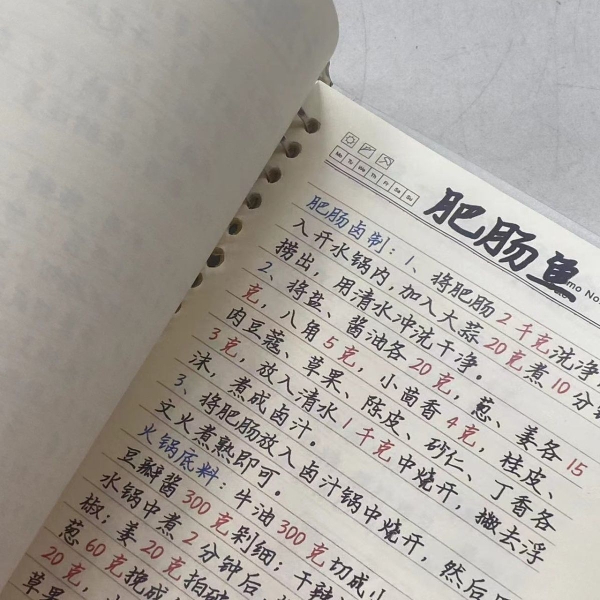 Mo Tu We Th Fr Sa Su
肥肠鱼
Memo No.
肥肠卤制：1、将肥肠2千克洗净
入开水锅内，加入大蒜20克煮10分钟
捞出，用清水冲洗干净。
2、将盐、酱油各20克，葱、姜各15
克，八角5克，小茴香4克，桂皮、
肉豆蔻、草果、陈皮、砂仁、丁香各
3克，放入清水1千克中烧开，撇去浮
沫，煮成卤汁。
3、将肥肠放入卤汁锅中烧开，然后用
文火煮熟即可。
火锅底料：牛油300克切成小
豆瓣酱300克剁细；干辣
水锅中煮2分钟后
椒；姜20克拍破
葱60克挽成
20克，
草果